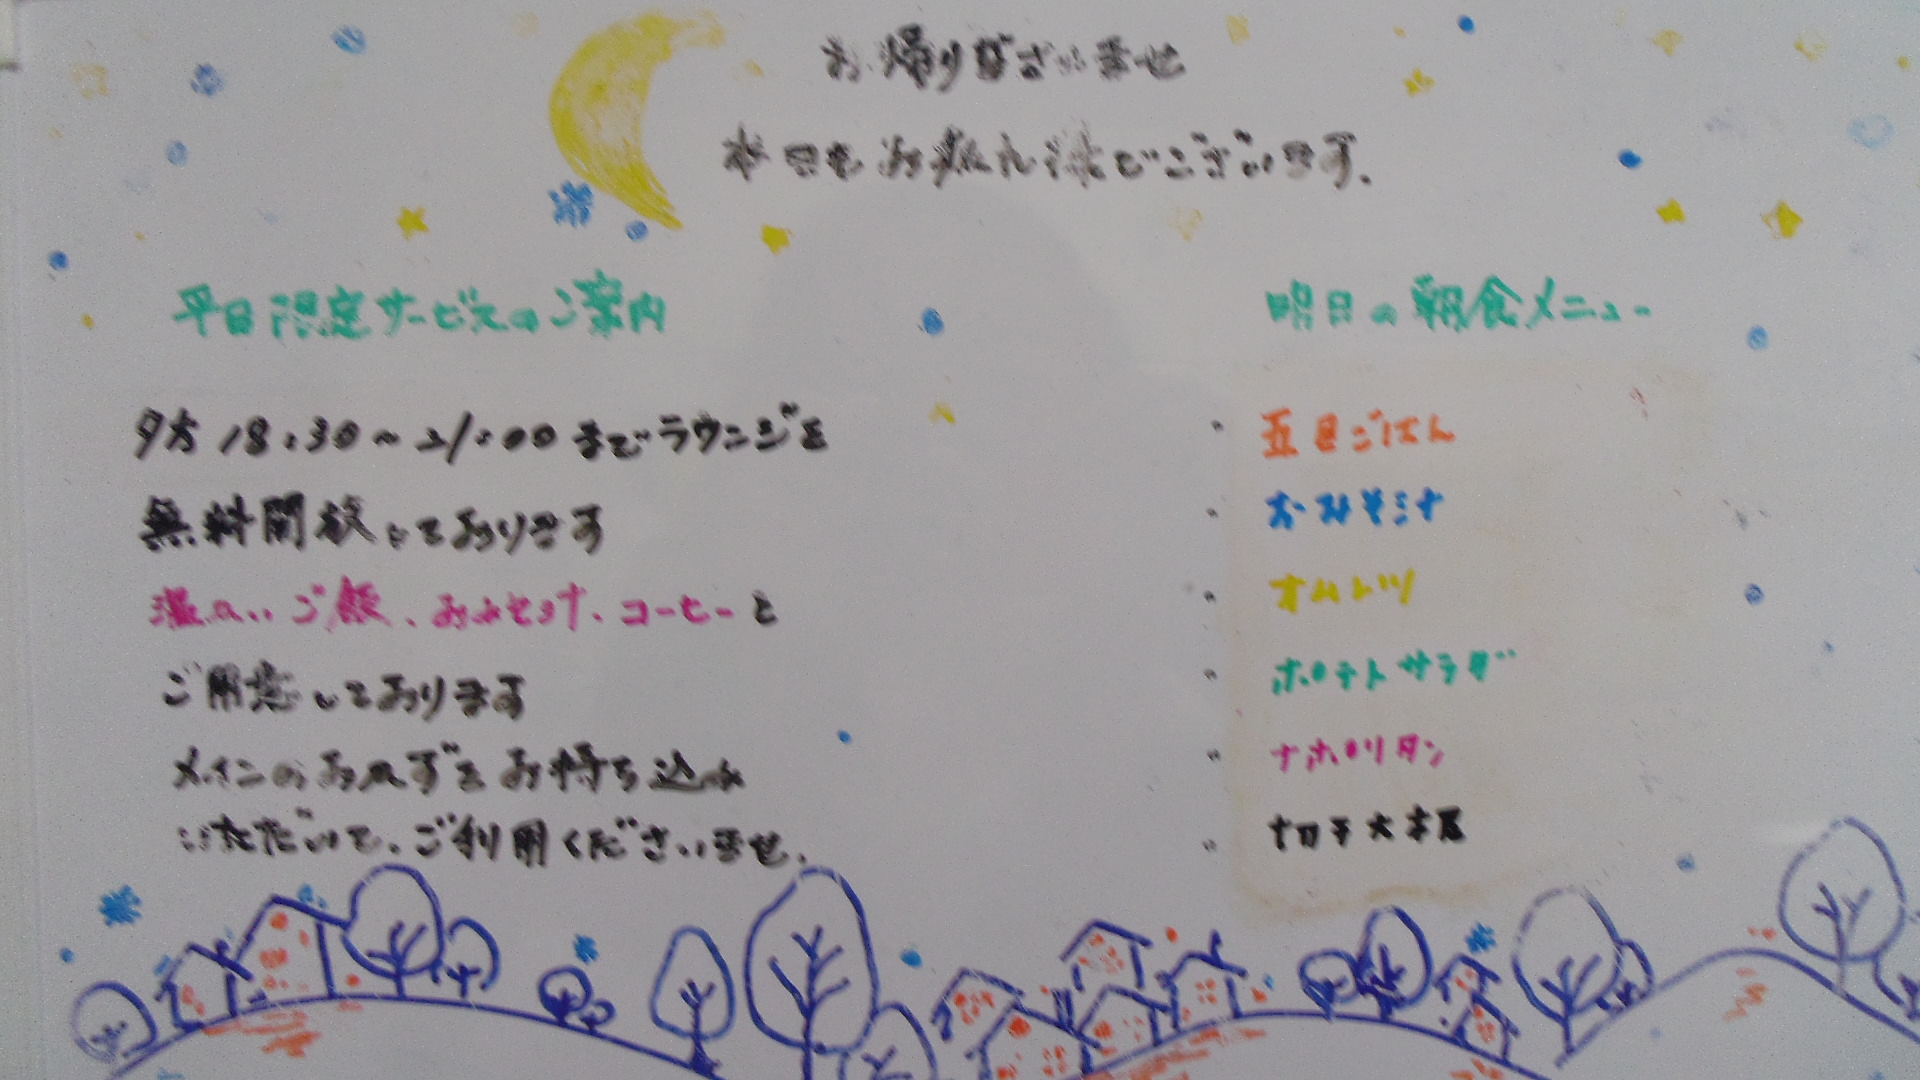 お帰りなさいませ
本日もお疲れ様でございます.
平日限定サービスのご案内
夕方 18:30～21:00までラウンジを
無料開放しております
温かいご飯、おみそ汁、コーヒーと
ご用意しております
メインのおかずをお持ち込み
いただいて、ご利用くださいませ.
明日の朝食メニュー
・五目ごはん
・おみそ汁
・オムレツ
・ポテトサラダ
・ナポリタン
・切干大根